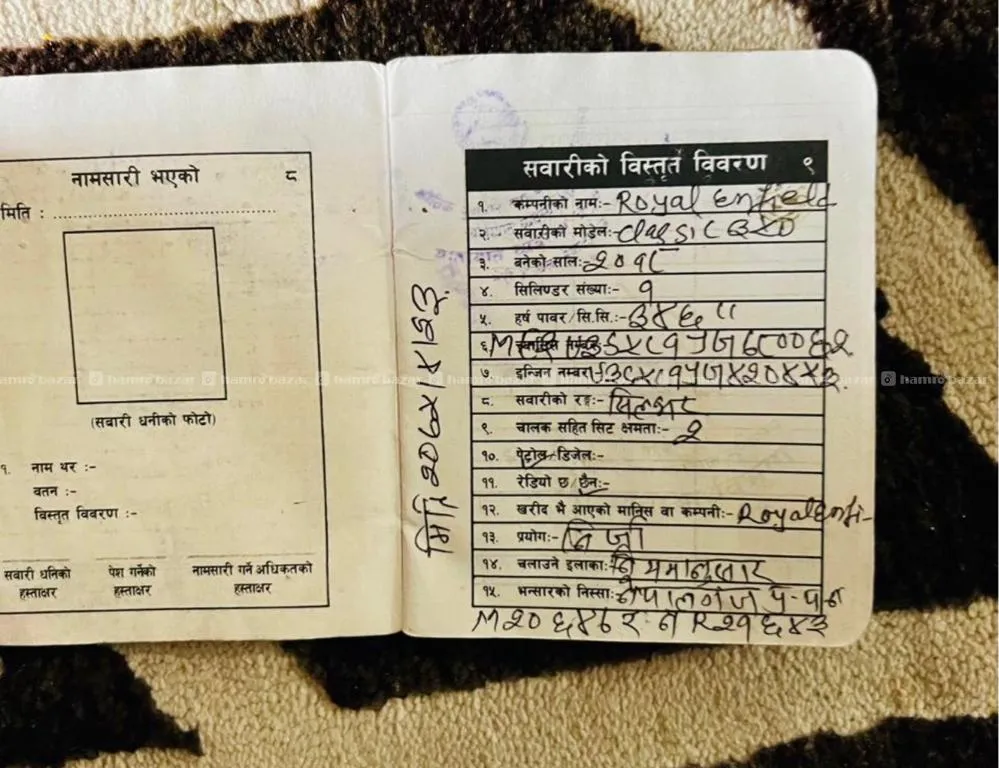 नामसारी भएको ८
मिति : ........................................
(सवारी धनीको फोटो)
१. नाम थर :-
वतन :-
विस्तृत विवरण :-
सवारी धनिको हस्ताक्षर
पेश गर्नेको हस्ताक्षर
नामसारी गर्ने अधिकृतको हस्ताक्षर
सवारीको विस्तृत विवरण ९
१. कम्पनीको नाम:- Royal Enfield
२. सवारीको मोडेल:- classic ३५०
३. बनेको साल:- २०१८
४. सिलिण्डर संख्या:- १
५. हर्ष पावर/सि.सि.:- ३४६
६.
७. इन्जिन नम्बर
८. सवारीको रङ्ग:- सिलभर
९. चालक सहित सिट क्षमता:- २
१०. पेट्रोल/डिजेल:-
११. रेडियो छ/छैन:-
१२. खरीद भै आएको मानिस वा कम्पनी:- Royal Enfi-
१३. प्रयोग:- निजी
१४. चलाउने इलाका: नियमानुसार
१५. भन्सारको निस्सा: नेपालगंज प्र-प-न
M२०६४८२ न R२१६४३
मिति २०७५
hamro bazar hamro bazar hamro bazar hamro bazar